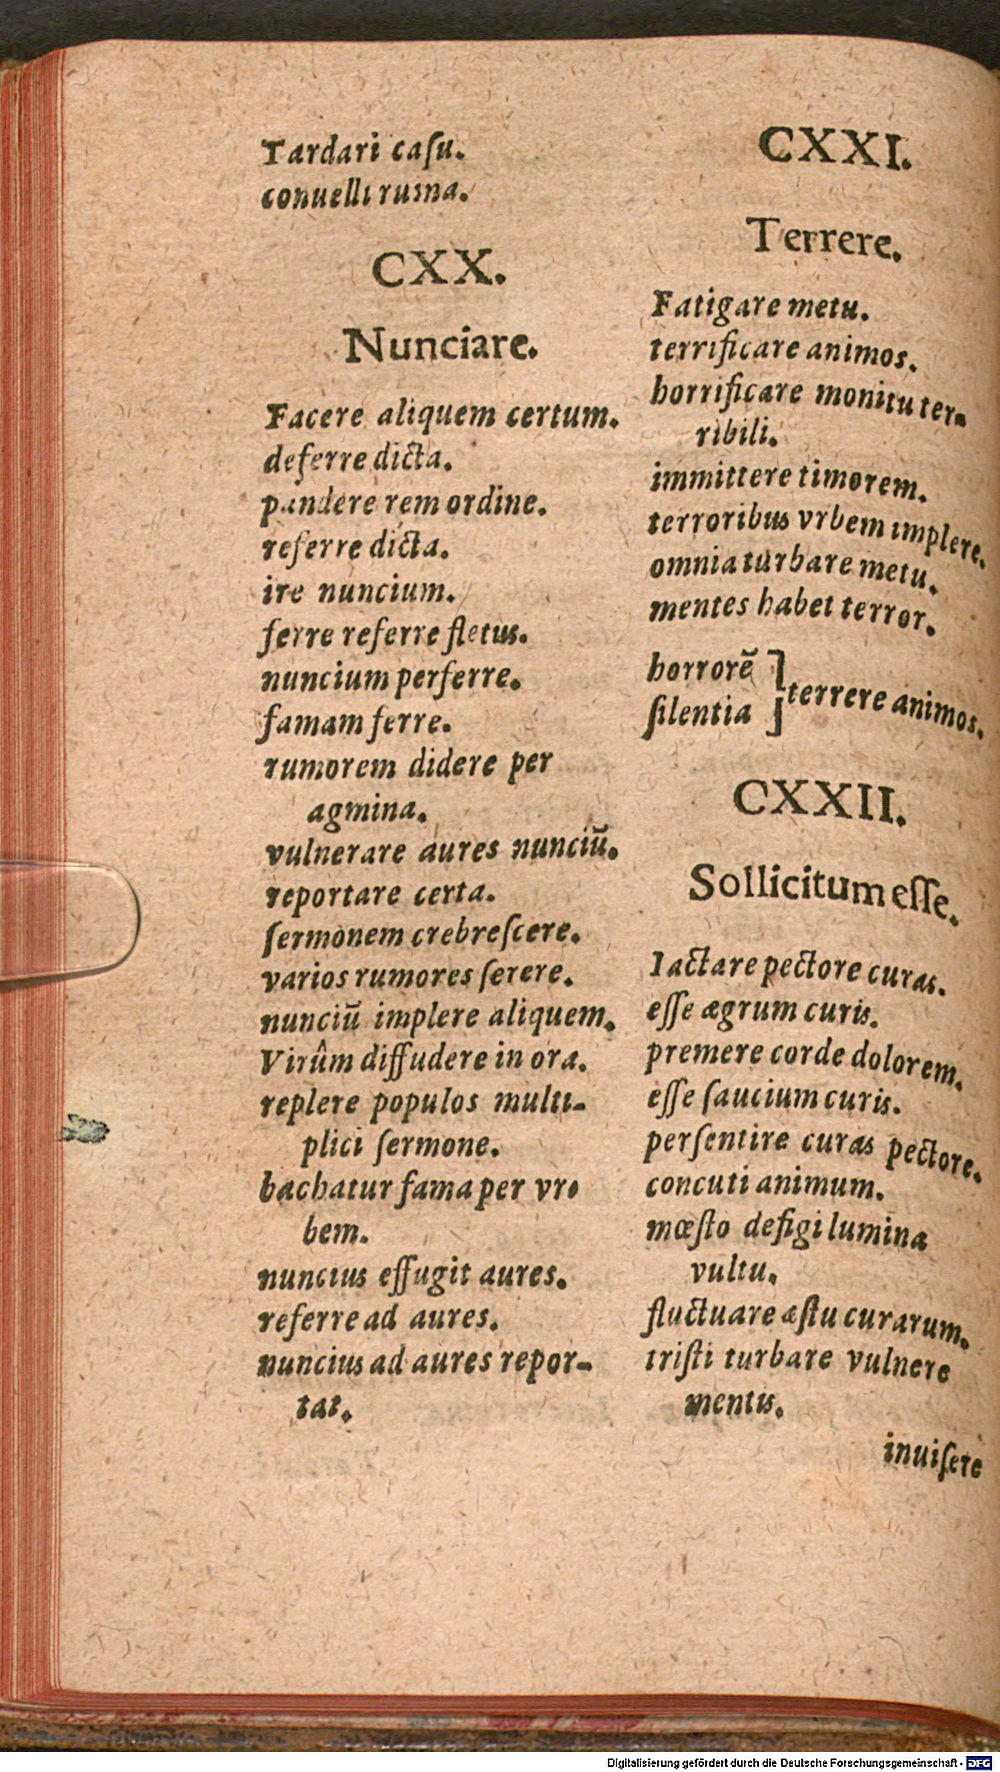 Tardari caſu.
conuelli ruina.
CXX.
Nunciare.
Facere aliquem certum.
deferre dicta.
pandere rem ordine.
referre dicta.
ire nuncium.
ferre referre fletus.
nuncium perferre.
famam ferre.
rumorem didere per
agmina.
vulnerare aures nunciū.
reportare certa.
ſermonem crebreſcere.
varios rumores ſerere.
nunciū implere aliquem.
Virûm diffudere in ora.
replere populos multi-
plici ſermone.
bachatur fama per vr-
bem.
nuncius effugit aures.
referre ad aures.
nuncius ad aures repor-
tat.
CXXI.
Terrere.
Fatigare metu.
terrificare animos.
horrificare monitu ter-
ribili.
immittere timorem.
terroribus vrbem implere.
omnia turbare metu.
mentes habet terror.
horrorē ] terrere animos.
ſilentia
CXXII.
Sollicitum eſſe.
Iactare pectore curas.
eſſe ægrum curis.
premere corde dolorem.
eſſe ſaucium curis.
perſentire curas pectore.
concuti animum.
mœſto defigi lumina
vultu.
fluctuare æſtu curarum.
triſti turbare vulnere
mentis.
inuiſere
Digitalisierung gefördert durch die Deutsche Forschungsgemeinschaft - DFG